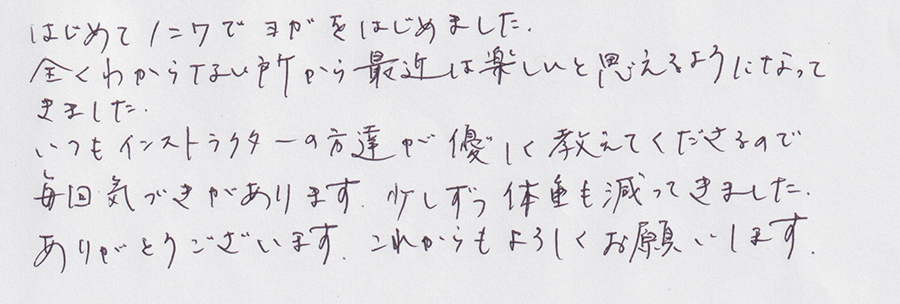 はじめてノニワでヨガをはじめました.
全くわからない所から最近は楽しいと思えるようになって
きました.
いつもインストラクターの方達が優しく教えてくださるので
毎回気づきがあります. 少しずつ体重も減ってきました.
ありがとうございます. これからもよろしくお願いします.